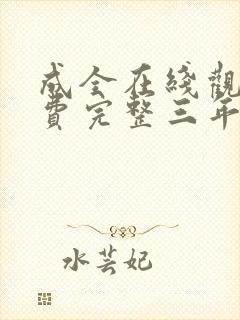 成全在线觀
費完整三年
水芸妃